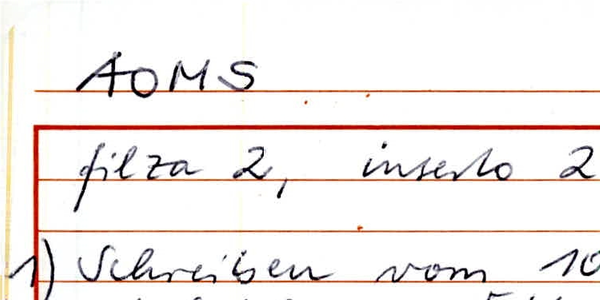 AOMS
filza 2, inserto 2
1) Schreiben vom 10